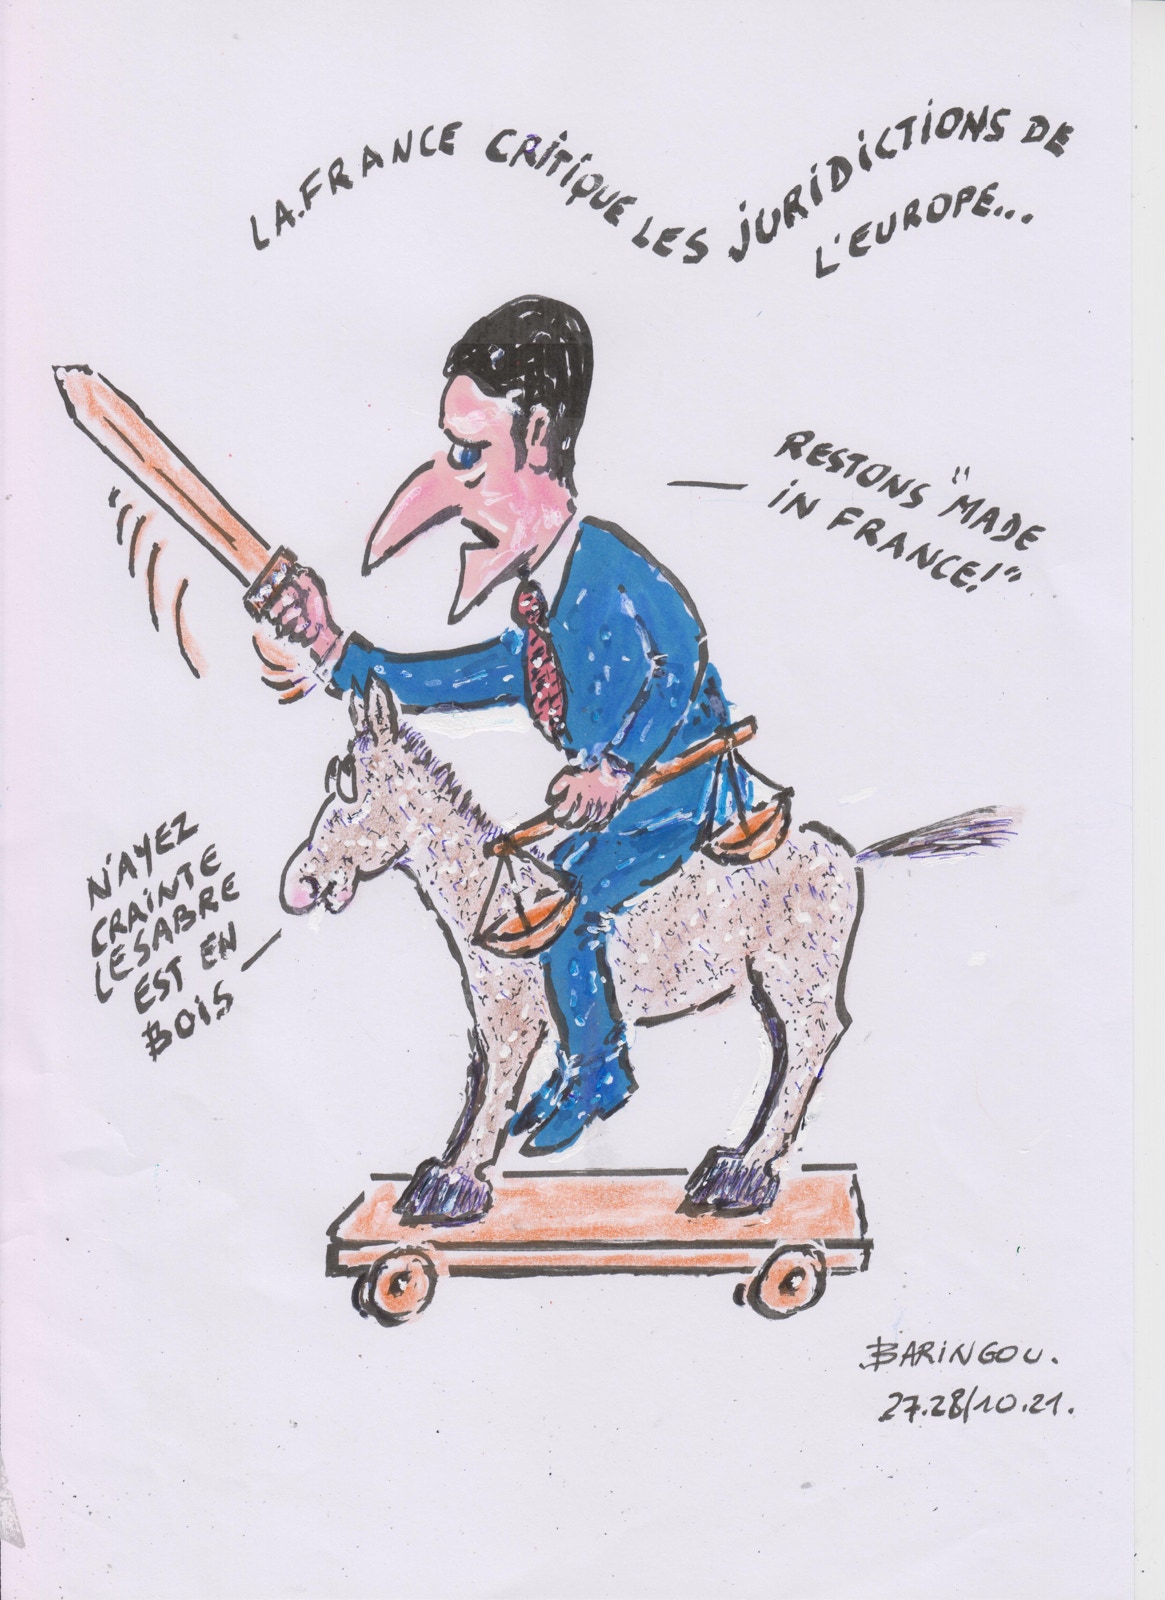 LA.FRANCE CRITIQUE LES JURIDICTIONS DE
L'EUROPE...
RESTONS "MADE
IN FRANCE!"
N'AYEZ
CRAINTE
LE SABRE
EST EN
BOIS
BARINGOU.
27.28/10.21.